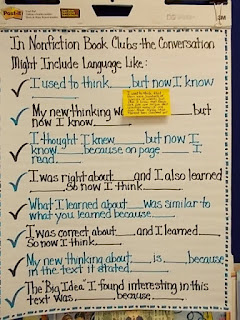 Post-it
3M
In Nonfiction Book Clubs the Conversation
Might Include Language Like:
✓ I used to think___but now I know
___.
✓ My new thinking w but
now I know___.
✓ I thought I knew___but now I
know___because on page___I
read___.
✓ I was right about___and I also learned
___. So now I think___.
✓ What I learned about___was similar to
what you learned because___.
✓ I was correct about___and I learned___.
So now I think___.
✓ My new thinking about___is___because
in the text it stated___.
✓ The "Big Idea" I found interesting in this
text was___because___.